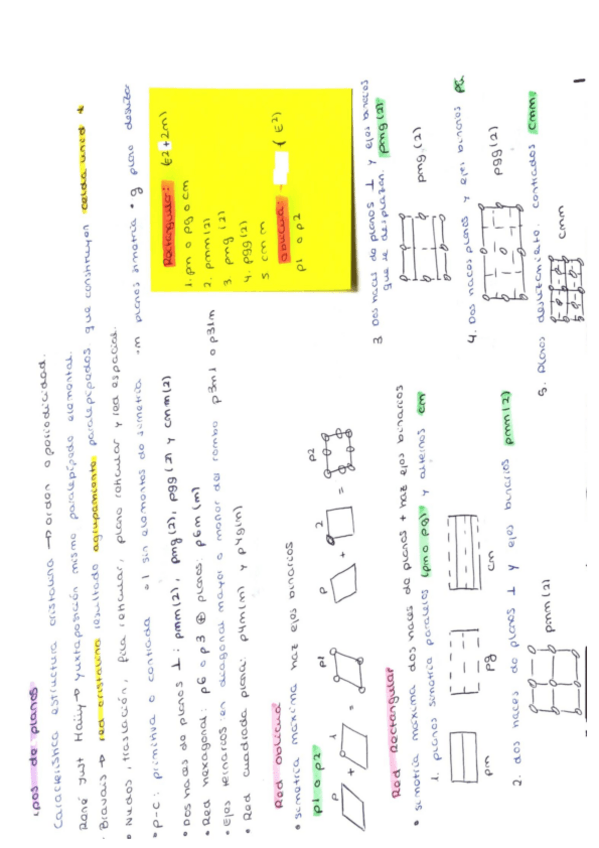 ipos de planos
Característica estructura cristalina → orden o periodicidad.
René Just Haüy → Yuxtaposición mismo paralepípedo elemental.
· Bravais → red cristalina resultado agrupamiento paralepípedos que constituyen celda unid +
• Nudos, traslación, fila reticular, plano reticular y red espacial.
• P-C: primitiva o centrada • 1 sin elementos de simetría • m planos simetría • g plano desliza
• Dos haces de planos ⊥: pmm(2), pmg(2), pgg(2) y cmm(2)
• Red hexagonal: p6 o p3 ⊕ planos: p6m(m)
• Ejes ternarios: en diagonal mayor o menor del rombo p3m1 o p31m
• Red cuadrada plana: p4m(m) y p4g(m)
Rectangular: (E2+2m)
1. pm o pg o cm
2. pmm(2)
3 pmg (2)
4. pgg(2)
5 cmm
Oblicua: (E2)
p1 o p2
Red Oblicua
• Simetría máxima haz ejes binarios
p1 o p2
P + 1 = p1
P + 2 = p2
Red Rectangular
• Simetría máxima dos haces de planos + haz ejes binarios
1. planos simetría paralelos (pm o pg) y alternos cm
pm pg cm
2. dos haces de planos ⊥ y ejes binarios pmm(2)
pmm(2)
3 Dos haces de planos ⊥ y ejes binarios
que se desplazan. pmg(2)
pmg(2)
4. Dos haces planos y ejes binarios pg
pgg(2)
5. Planos deslizamiento, centrados cmm
cmm
1